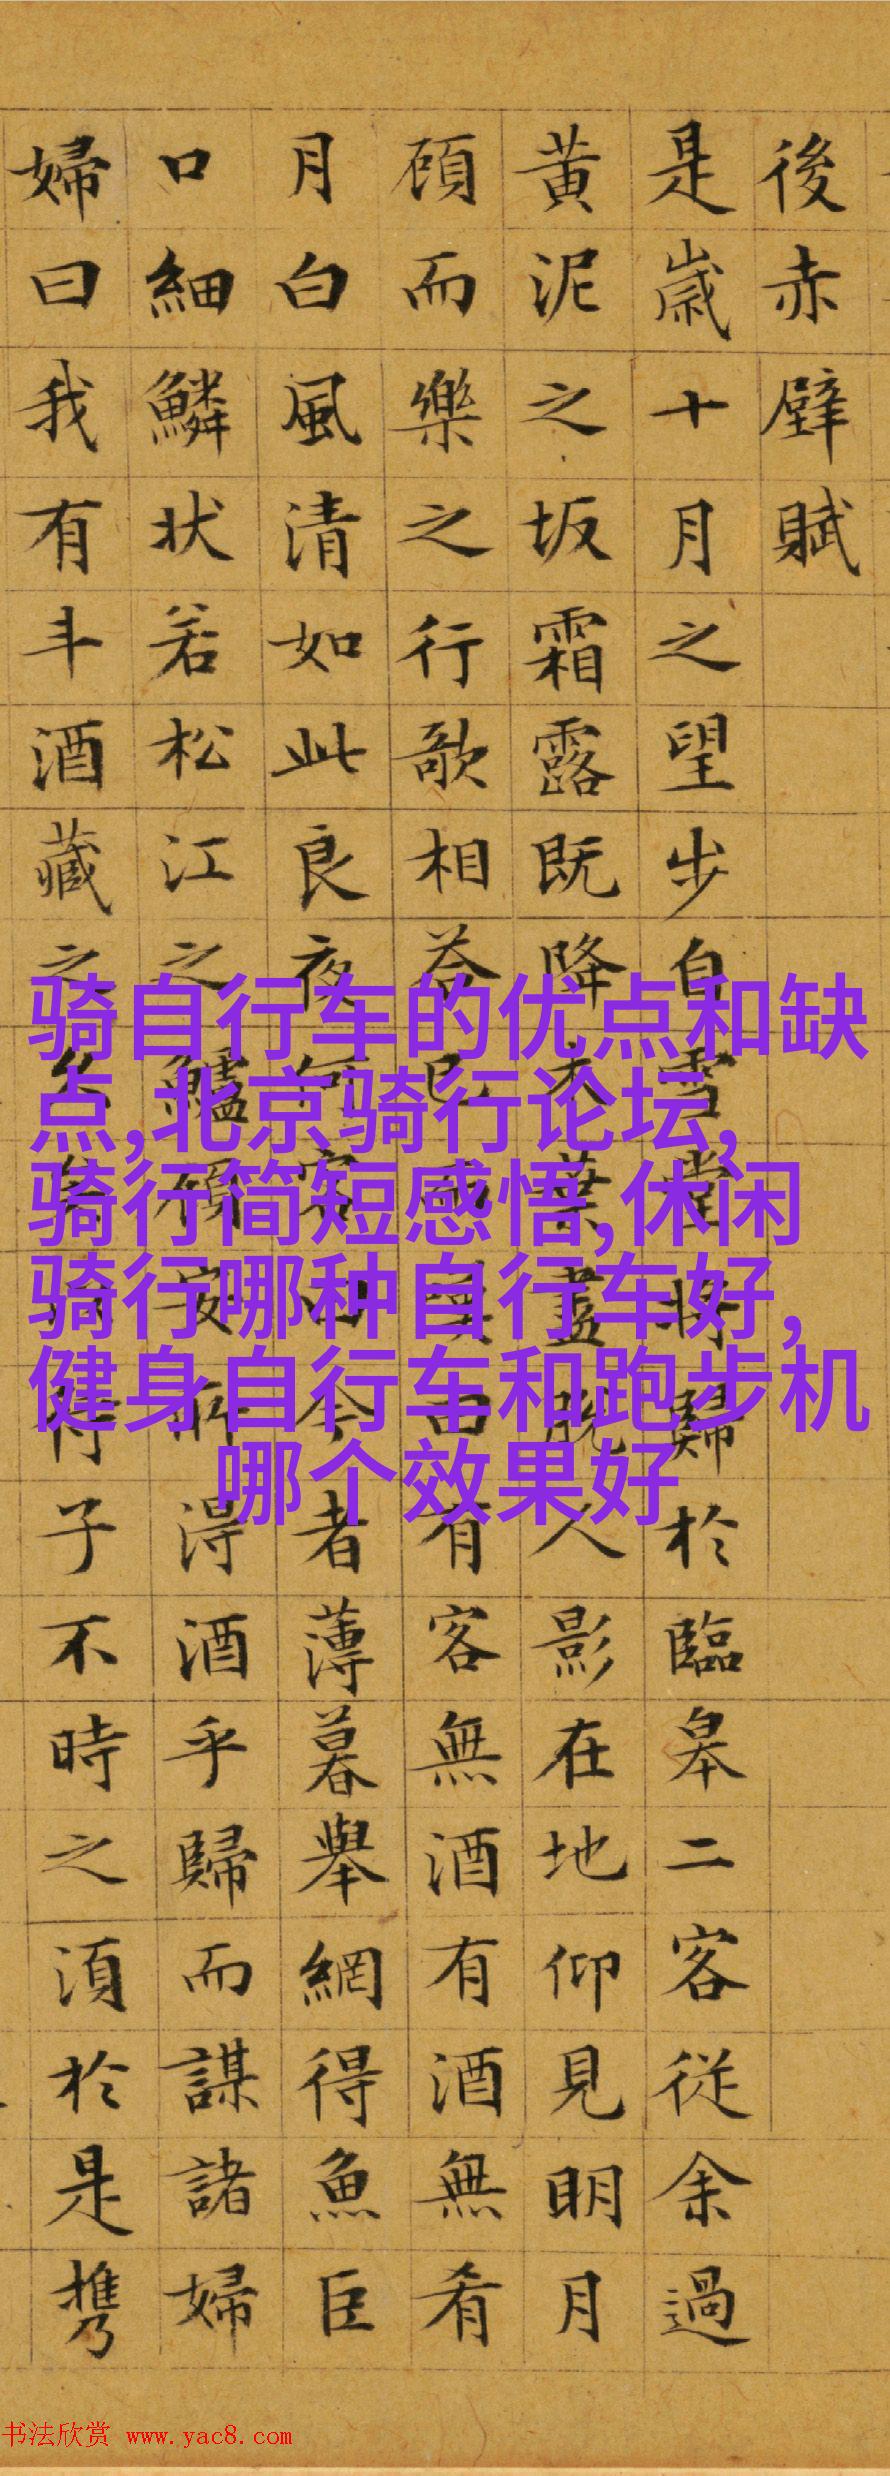 後赤壁賦
是歲十月之望步自雪堂將歸於臨皋二客從余過
黄泥之坂霜露既降木葉盡脱人影在地仰見明月
頋而樂之行歌相荅已而嘆曰有客無酒有酒無肴
月白風清如此良夜何客曰今者薄暮舉網得魚巨
口細鱗狀若松江之鱸頋安所得酒乎歸而謀諸婦
婦曰我有斗酒藏之久矣以待子不時之湏於是携
骑自行车的优点和缺
点,北京骑行论坛,
骑行简短感悟,休闲
骑行哪种自行车好,
健身自行车和跑步机
哪个效果好
书法欣赏 www.yac8.com